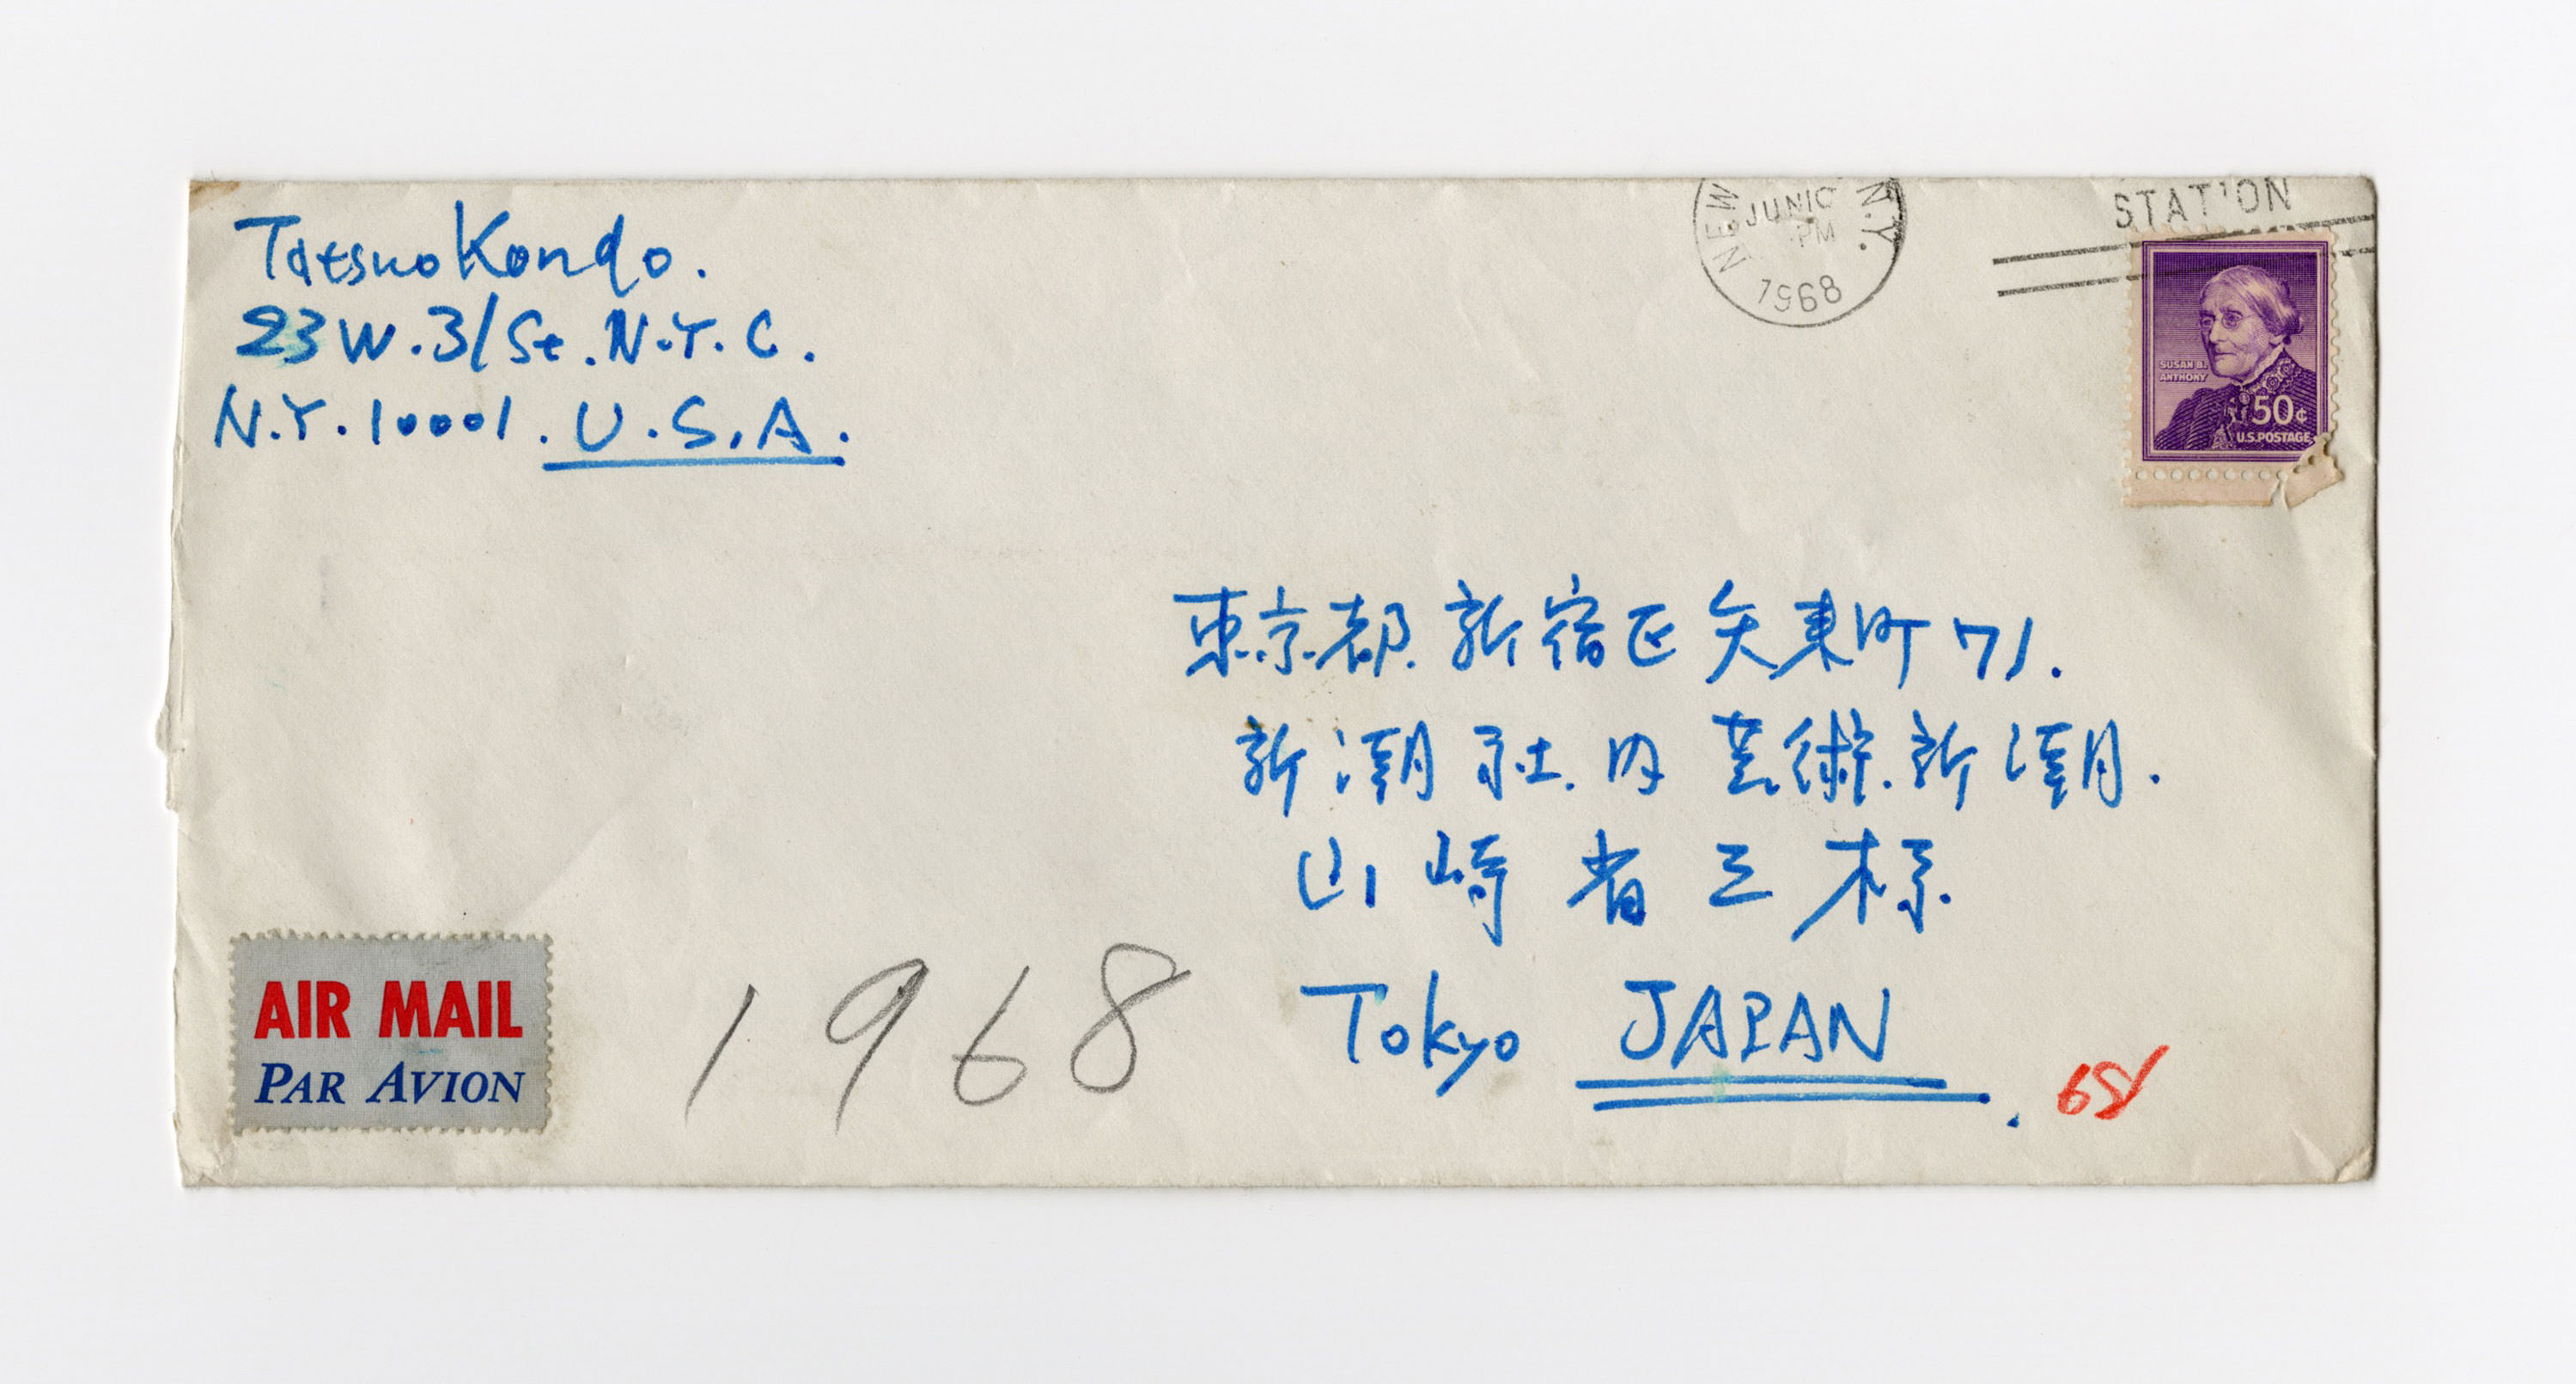 Tatsuo Kondo.
23 W. 31 St. N.Y.C.
N.Y. 10001. U.S.A.
NEW N.Y.
JUN 10
PM
1968
STATION
SUSAN B.
ANTHONY
50¢
U.S. POSTAGE
東京都 新宿区 矢来町 71.
新潮社内 芸術新潮.
山崎省三様
Tokyo JAPAN
AIR MAIL
PAR AVION
1968
68